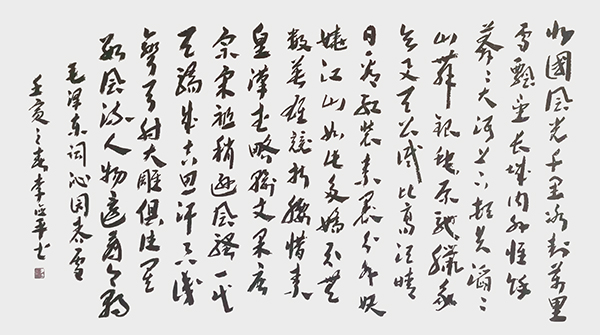 北國風光千里冰封萬里
雪飄望长城内外惟餘
莽々大河上下頓失滔々
山舞银蛇原驰蠟象
欲与天公试比高须晴
日看红装素裹分外妖
娆江山如此多嬌引无
数英雄競折腰惜秦
皇漢武略输文采唐
宗宋祖稍逊風騷一代
天骄成吉思汗只识
彎弓射大雕俱往矣
数風流人物還看今朝
毛泽东词沁园春雪
之春李平书